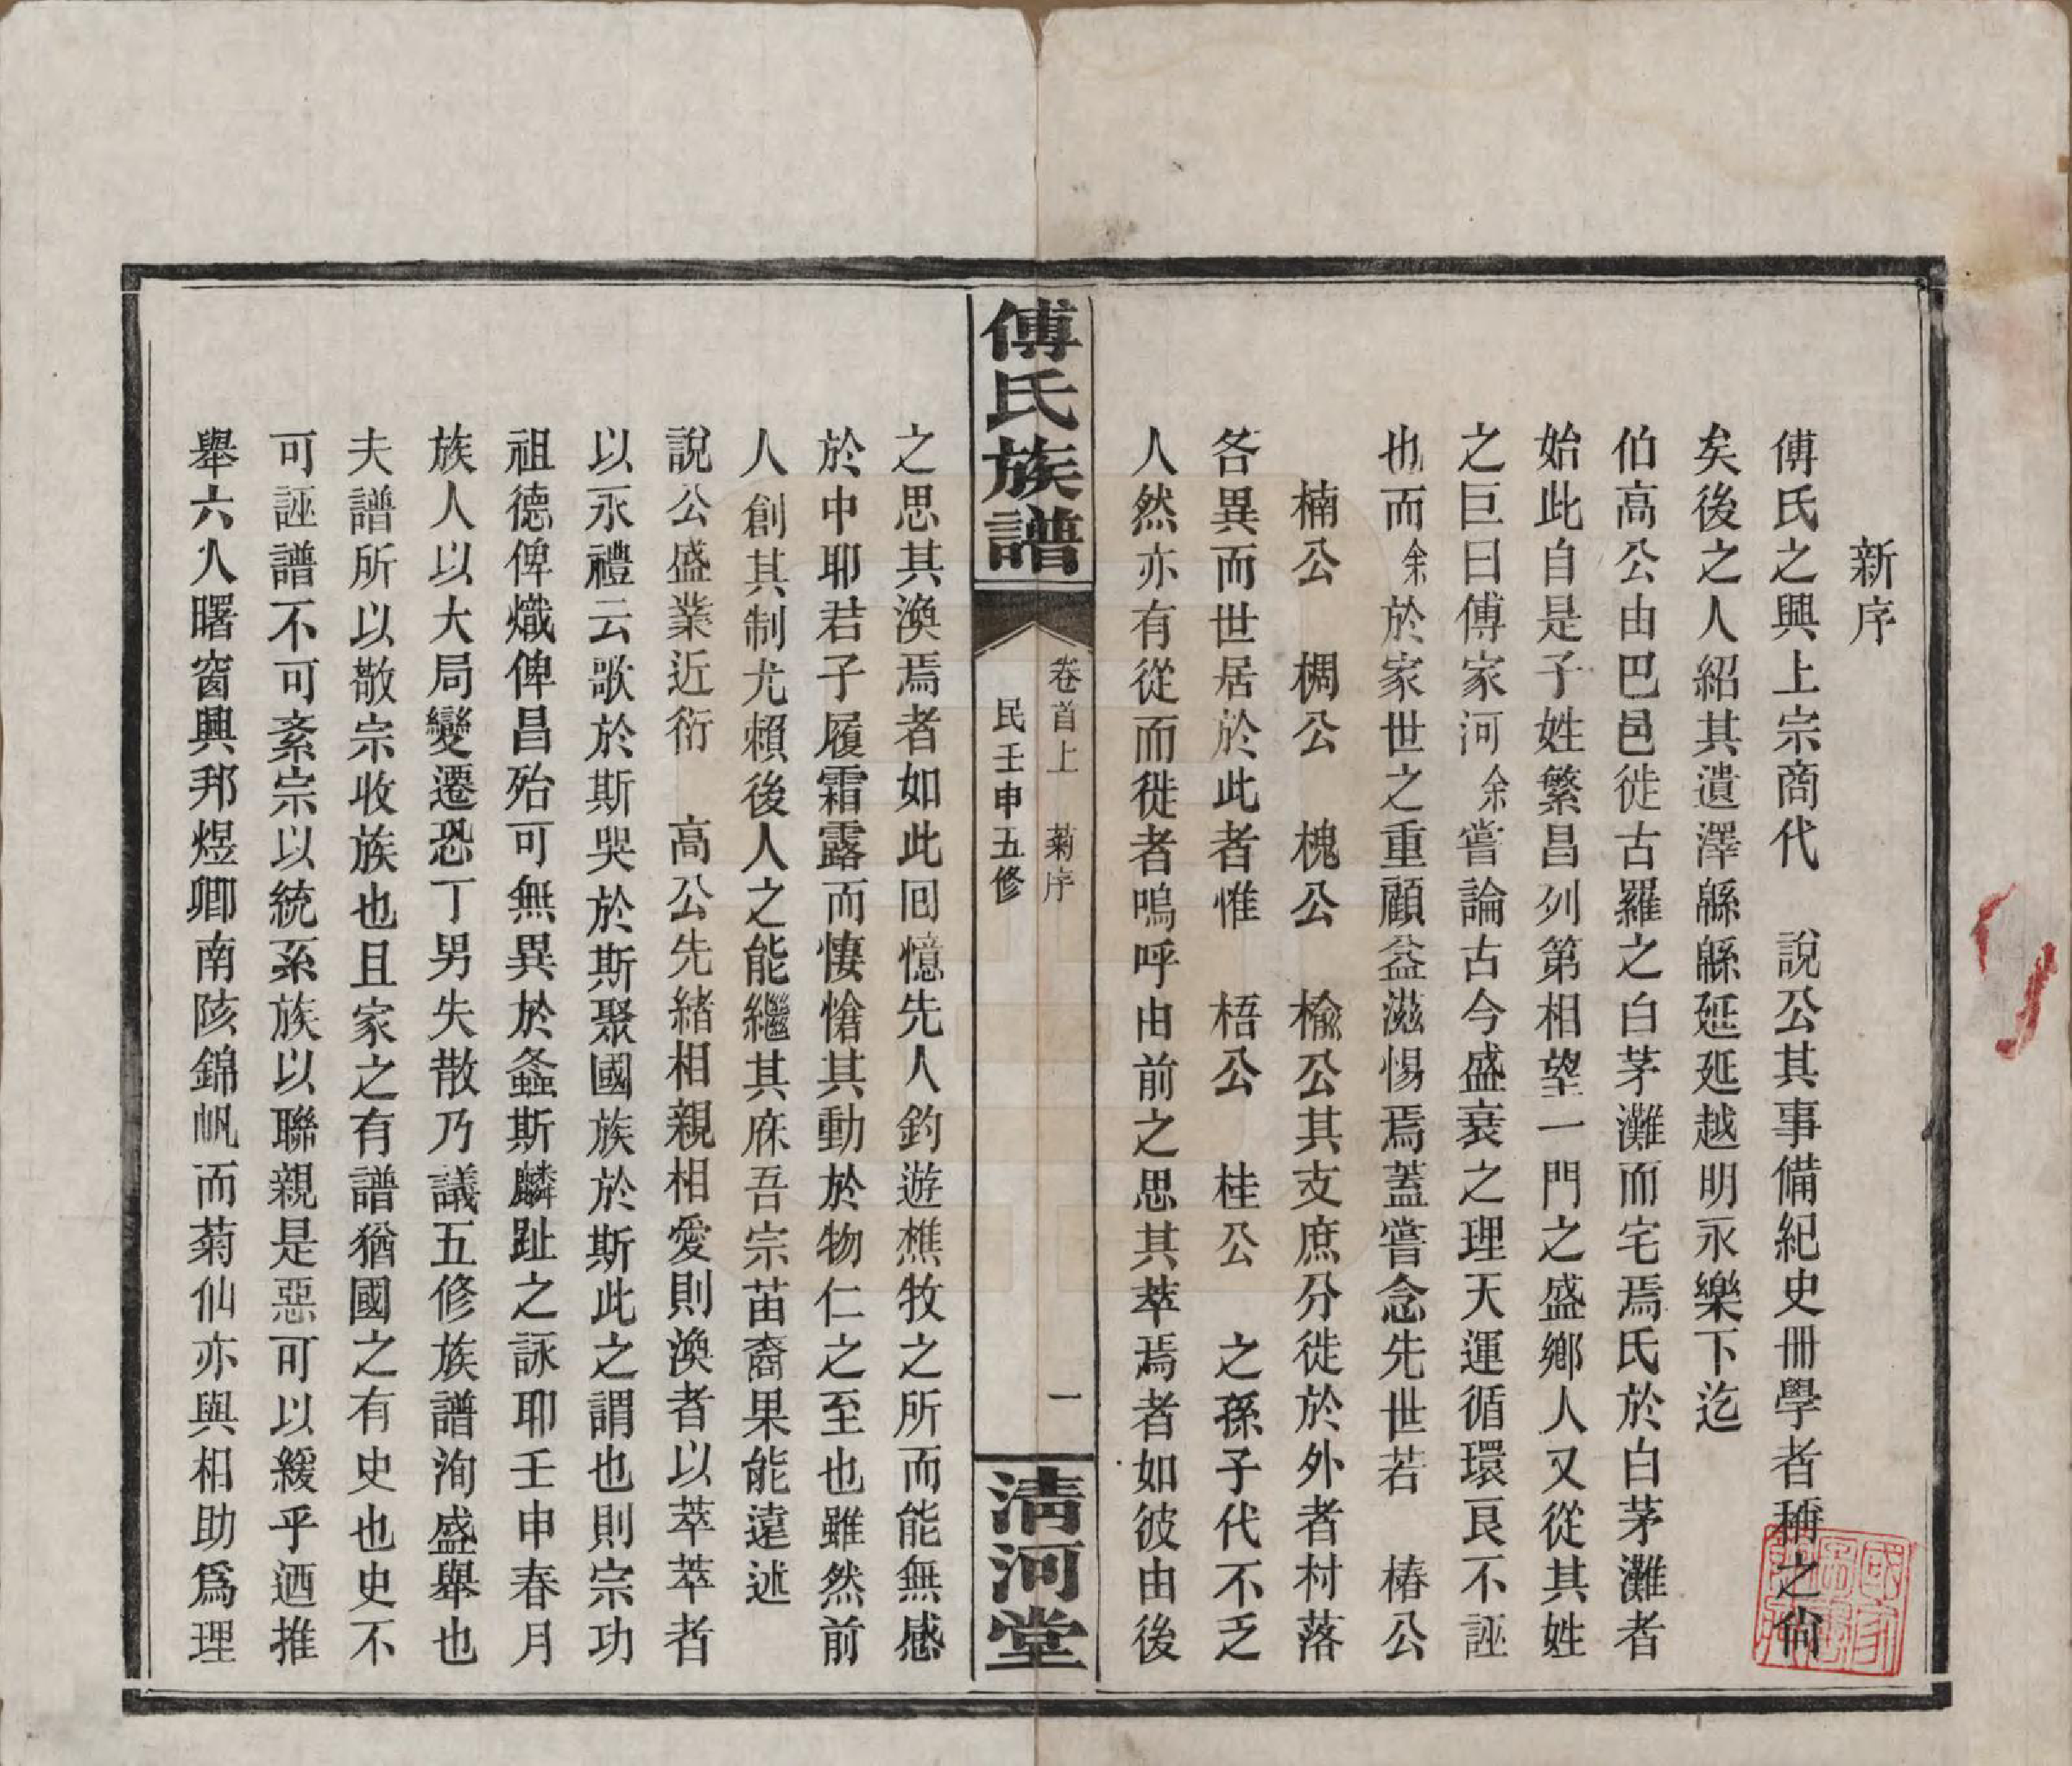 新序
傅氏之興上宗商代　說公其事備紀史冊學者稱之尙
矣後之人紹其遺澤緜緜延延越明永樂下迄
伯高公由巴邑徙古羅之白茅灘而宅焉氏於白茅灘者
始此自是子姓繁昌列第相望一門之盛鄉人又從其姓
之巨曰傅家河余嘗論古今盛衰之理天運循環良不誣
也而余於家世之重顧益滋惕焉蓋嘗念先世若　椿公
楠公　椆公　槐公　楡公其支庶分徙於外者村落
各異而世居於此者惟　梧公　桂公　之孫子代不乏
人然亦有從而徙者嗚呼由前之思其萃焉者如彼由後
傅氏族譜
卷首上　菊序
民壬申五修
一
淸河堂
之思其渙焉者如此囘憶先人釣遊樵牧之所而能無感
於中耶君子履霜露而悽愴其動於物仁之至也雖然前
人創其制尤賴後人之能繼其庥吾宗苗裔果能遠述
說公盛業近衍　高公先緒相親相愛則渙者以萃萃者
以永禮云歌於斯哭於斯聚國族於斯此之謂也則宗功
祖德俾熾俾昌殆可無異於螽斯麟趾之詠耶壬申春月
族人以大局變遷恐丁男失散乃議五修族譜洵盛舉也
夫譜所以敬宗收族也且家之有譜猶國之有史也史不
可誣譜不可紊宗以統系族以聯親是惡可以緩乎迺推
舉六人曙窗興邦煜卿南陔錦帆而菊仙亦與相助爲理